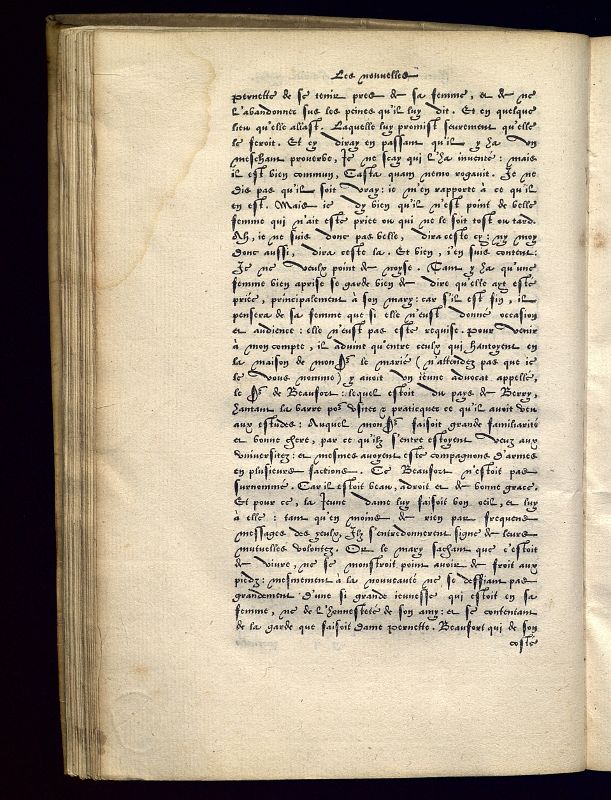 Les nouvelles
pernette de se tenir pres de sa femme, et de ne
l'abandonner sus les peines qu'il luy dit. Et en quelque
lieu qu'elle allast. Laquelle luy promist seurement qu'elle
le feroit. Et cy diray en passant qu'il y ha vn
meschant prouerbe, Je ne scay qui l'ha inventé: mais
il est bien commun, Casta quam nemo rogauit. Je ne
dis pas qu'il soit vray: ie m'en rapporte à ce qu'il
en est. Mais ie dy bien qu'il n'est point de belle
femme qui n'ait esté priee ou qui ne le soit tost ou tard.
Ah, ie ne suis donc pas belle, dira ceste cy: ny moy
donc aussi, dira ceste la. Et bien, i'en suis content:
Je ne veulx point de noyse. Tant y ha qu'une
femme bien aprise se garde bien de dire qu'elle ayt esté
priée, principalement à son mary: car s'il est fin, il
pensera de sa femme que si elle n'eust donné occasion
et audience: elle n'eust pas esté requise. Pour venir
à mon compte, il aduint qu'entre ceulx qui hantoyent en
la maison de mon Sr. le marié (n'attendez pas que ie
le vous nomme) y auoit vn ieune advocat appellé,
le Sr. de Beaufort: lequel estoit du pays de Berry,
hantant la barre por vsiter et practiquer ce qu'il auoit veu
aux estudes: Auquel mon Sr. faisoit grande familiarité
et bonne chere, par ce qu'ilz s'entre estoyent veuz aux
vniuersitez: et mesmes auoyent esté compagnons d'armes
en plusieurs factions. Ce Beaufort n'estoit pas
surnommé. Car il estoit beau, adroit et de bonne grace.
Et pour ce, la jeune dame luy faisoit bon oeil, et luy
à elle: tant qu'en moins de rien par frequens
messages des yeulx, Ilz s'entredonnerent signe de leurs
mutuelles volontez. Or le mary sachant que c'estoit
de viure, ne se monstroit point avoir de froit aux
piedz: mesmement à la nouueauté ne se deffiant pas
grandement d'une si grande ieunesse qui estoit en sa
femme, ne de l'honnesteté de son amy: et se contentant
de la garde que faisoit Dame pernette. Beaufort qui de son
costé